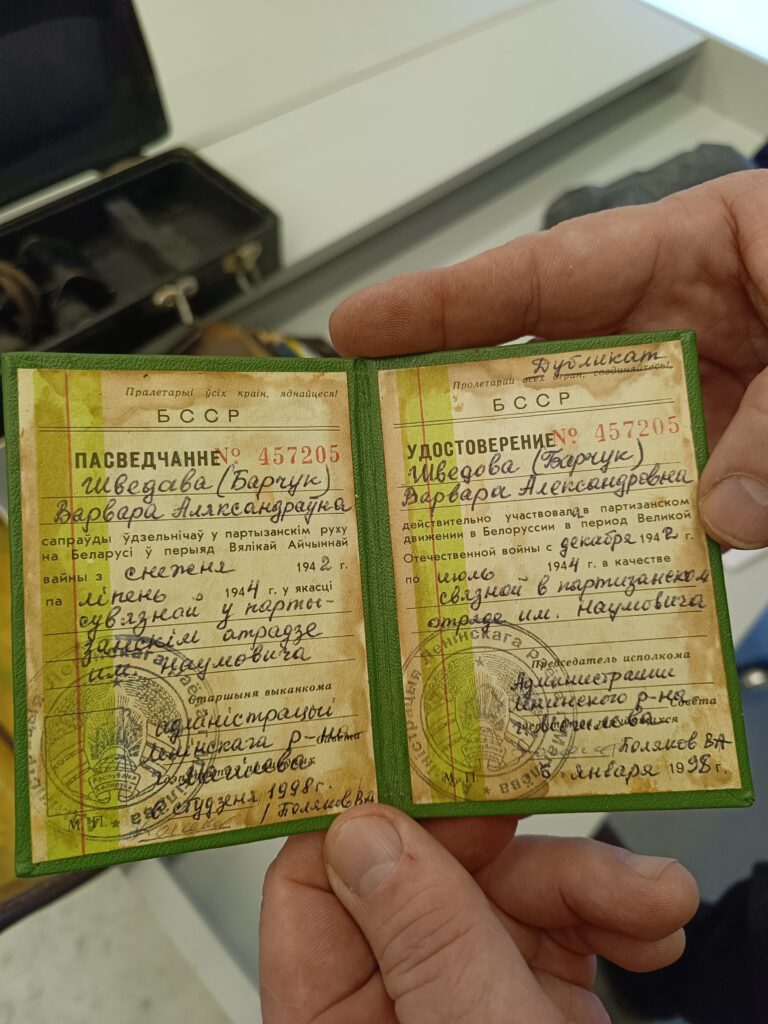 Пралетарыі ўсіх краін, яднайцеся!
БССР
ПАСВЕДЧАННЕ № 457205
Шведава (Барчук)
Варвара Аляксандраўна
сапраўды ўдзельнічаў у партызанскім руху
на Беларусі ў перыяд Вялікай Айчыннай
вайны з снежня 1942 г.
па ліпень 1944 г. у якасці
сувязной у парты-
занскім атрадзе
им. Наумовича
Старшыня выканкома
адміністрацыі
Ленінскага р-на
г. Магілёва
6 студзеня 1998 г.
М. П. / Поляков ВА
Дубликат
Пролетарии всех стран, соединяйтесь!
БССР
УДОСТОВЕРЕНИЕ № 457205
Шведова (Барчук)
Варвара Александровна
действительно участвовала в партизанском
движении в Белоруссии в период Великой
Отечественной войны с декабря 1942 г.
по июль 1944 г. в качестве
связной в партизанском
отряде им. Наумовича
Председатель исполкома
Администрации
Ленинского р-на Совета
г. Могилева
Поляков ВА
М. П. 6 » января 1998 г.
Ленінскага
Рэспубліка
Беларусь